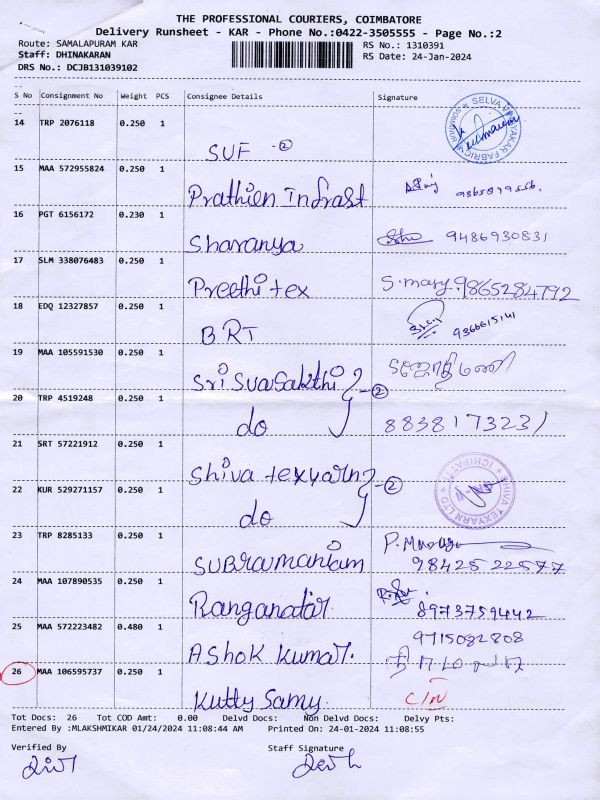 THE PROFESSIONAL COURIERS, COIMBATORE
Delivery Runsheet - KAR - Phone No.:0422-3505555 - Page No.:2
Route: SAMALAPURAM KAR RS No.: 1310391
Staff: DHINAKARAN RS Date: 24-Jan-2024
DRS No.: DCJB131039102
S No Consignment No Weight PCS Consignee Details Signature
14 TRP 2076118 0.250 1
SUF -②
15 MAA 572955824 0.250 1
Prathien Infrast
16 PGT 6156172 0.230 1
Sharanya 9486930831
17 SLM 338076483 0.250 1
Preethi tex S. mary. 9865284792
18 EDQ 12327857 0.250 1
BRT 9366615141
19 MAA 105591530 0.250 1
Sri Sivasakthi -②
20 TRP 4519248 0.250 1
do 8838173231
21 SRT 57221912 0.250 1
Shiva texyarn -②
22 KUR 529271157 0.250 1
do
SHIVA TEXYARN LTD
23 TRP 8285133 0.250 1
Subramaniam 98425 22577
24 MAA 107890535 0.250 1
Ranganatar 8973759442
25 MAA 572223482 0.480 1
Ashok Kumar. 9715082808
26 MAA 106595737 0.250 1
Kutty Samy. C/N
Tot Docs: 26 Tot COD Amt: 0.00 Delvd Docs: Non Delvd Docs: Delvy Pts:
Entered By :MLAKSHMIKAR 01/24/2024 11:08:44 AM Printed On: 24-01-2024 11:08:55
Verified By Staff Signature